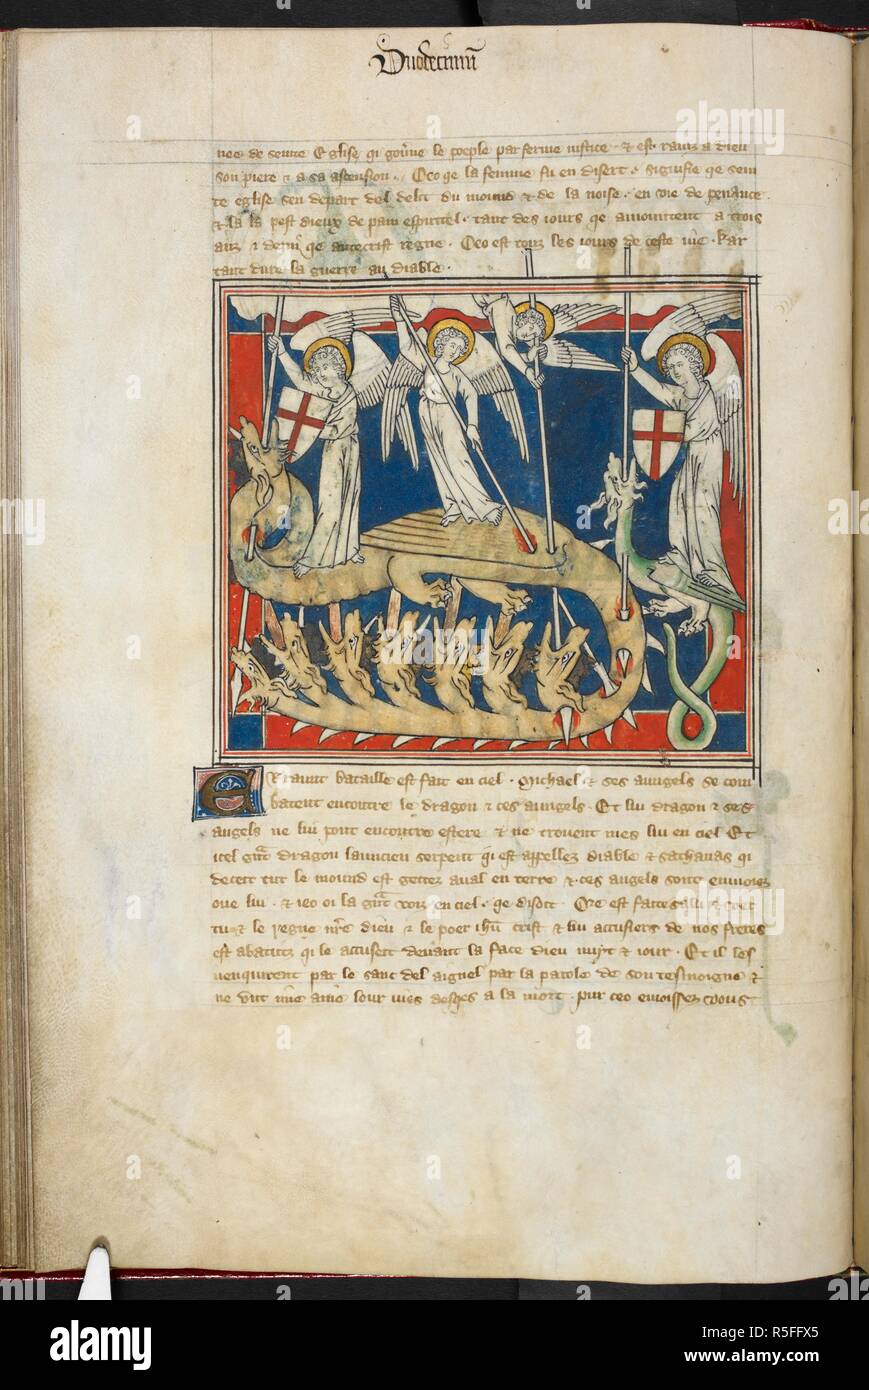 Duodecimum
nee de seinte Eglise qi gouṽne le poeple par ferme iustice · & est rauiz a dieu
son piere & a sa ascension · Ceo qe la femme fu en disert · signifie qe sein
te eglise seu depart del delit du mound & de la noise · en uie de penance ·
& la la pest dieux de pain espiritel · tant des iours qe amountent a trois
anz & demi qe antecrist regne · Ceo est touz les iours de ceste uie · kar
tant dure la guerre au diable ·
E raunt bataille est fait en ciel · Michael & ses aungels se com
batent encountre le dragon & ces aungels · Et lui dragon & ses
angels ne lui pont encontre estere & ne trouent mes liu en ciel Et
icel gñt dragon launcien serpent qi est appellez diable & sathanas qi
deceit tut le mound est gettez aual en terre & ces angels sont enuoiez
oue lui · & ieo oi la gñt voiz en ciel · qe disoit · Ore est faite saluz & ver
tu & le regne nr̃e dieu & le poer ihũ crist & lui accusiers de nos freres
est abatuz qi le accuseit deuant la face dieu nuyt & iour · Et il les
uenquirent par le sanc del aignel par la parole de son tesmoigne &
ne unt mie amé lour uies desqes a la mort · pur ceo enioissez vous
alamy
Image ID: R5FFX5
www.alamy.com